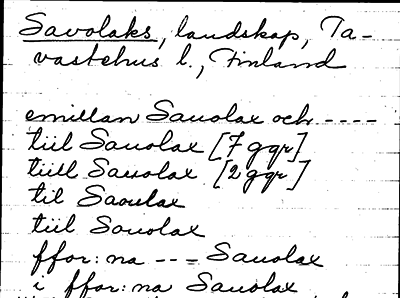 Savolaks, landskap, Ta-
vastehus l., Finland
emillan Sauolax och ----
tiil Sauolax [7 ggr]
tiill Sauolax [2 ggr]
til Saoulax
tiil Souolax
ffor: na --- Sauolax
i ffor: na Sauolax